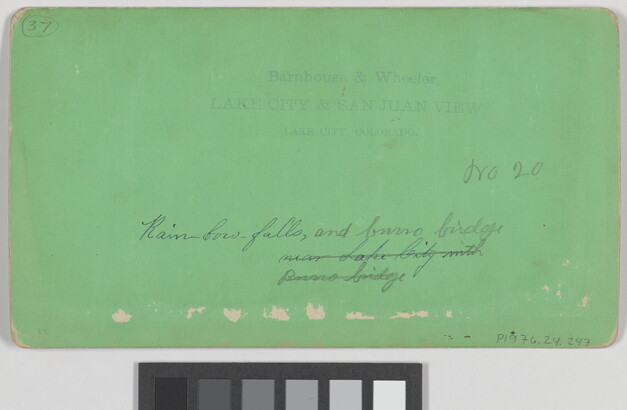 37
Barnhouse & Wheeler,
LAKE CITY & SAN JUAN VIEWS
LAKE CITY, COLORADO.
No 20
Rain-bow-falls, and burro birdge
near Lake City with
Burro bridge
P1976.24.247